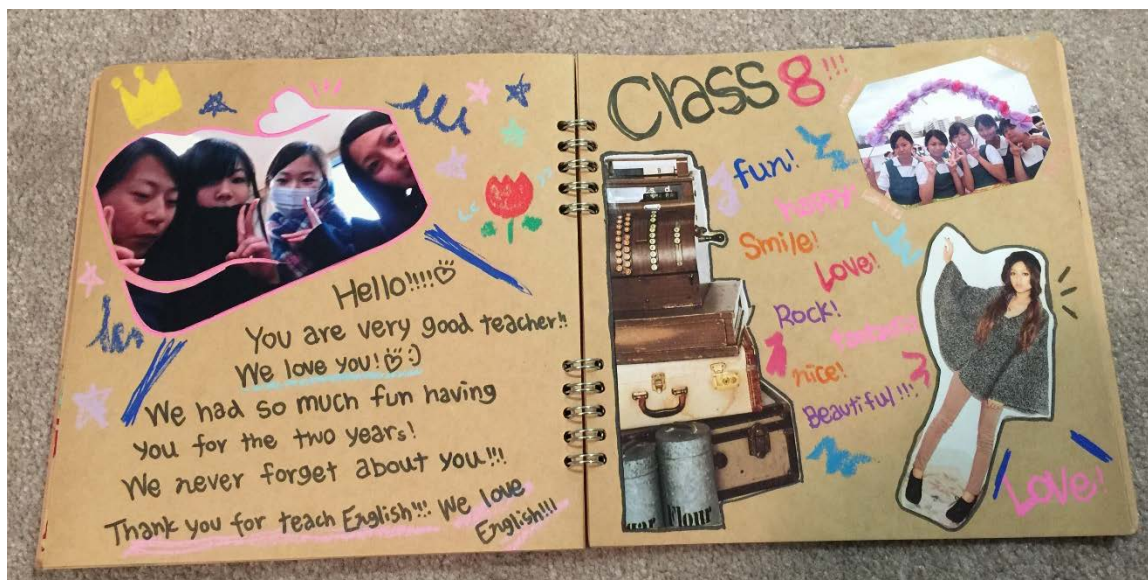 Hello!!!!
You are very good teacher!!
We love you! :)
We had so much fun having
you for the two years!
We never forget about you!!!
Thank you for teach English!!! We love
English!!!
Class 8!!!
fun!
happy
Smile!
Love!
Rock!
fantastic
nice!
Beautiful!!!
Love!
Flour